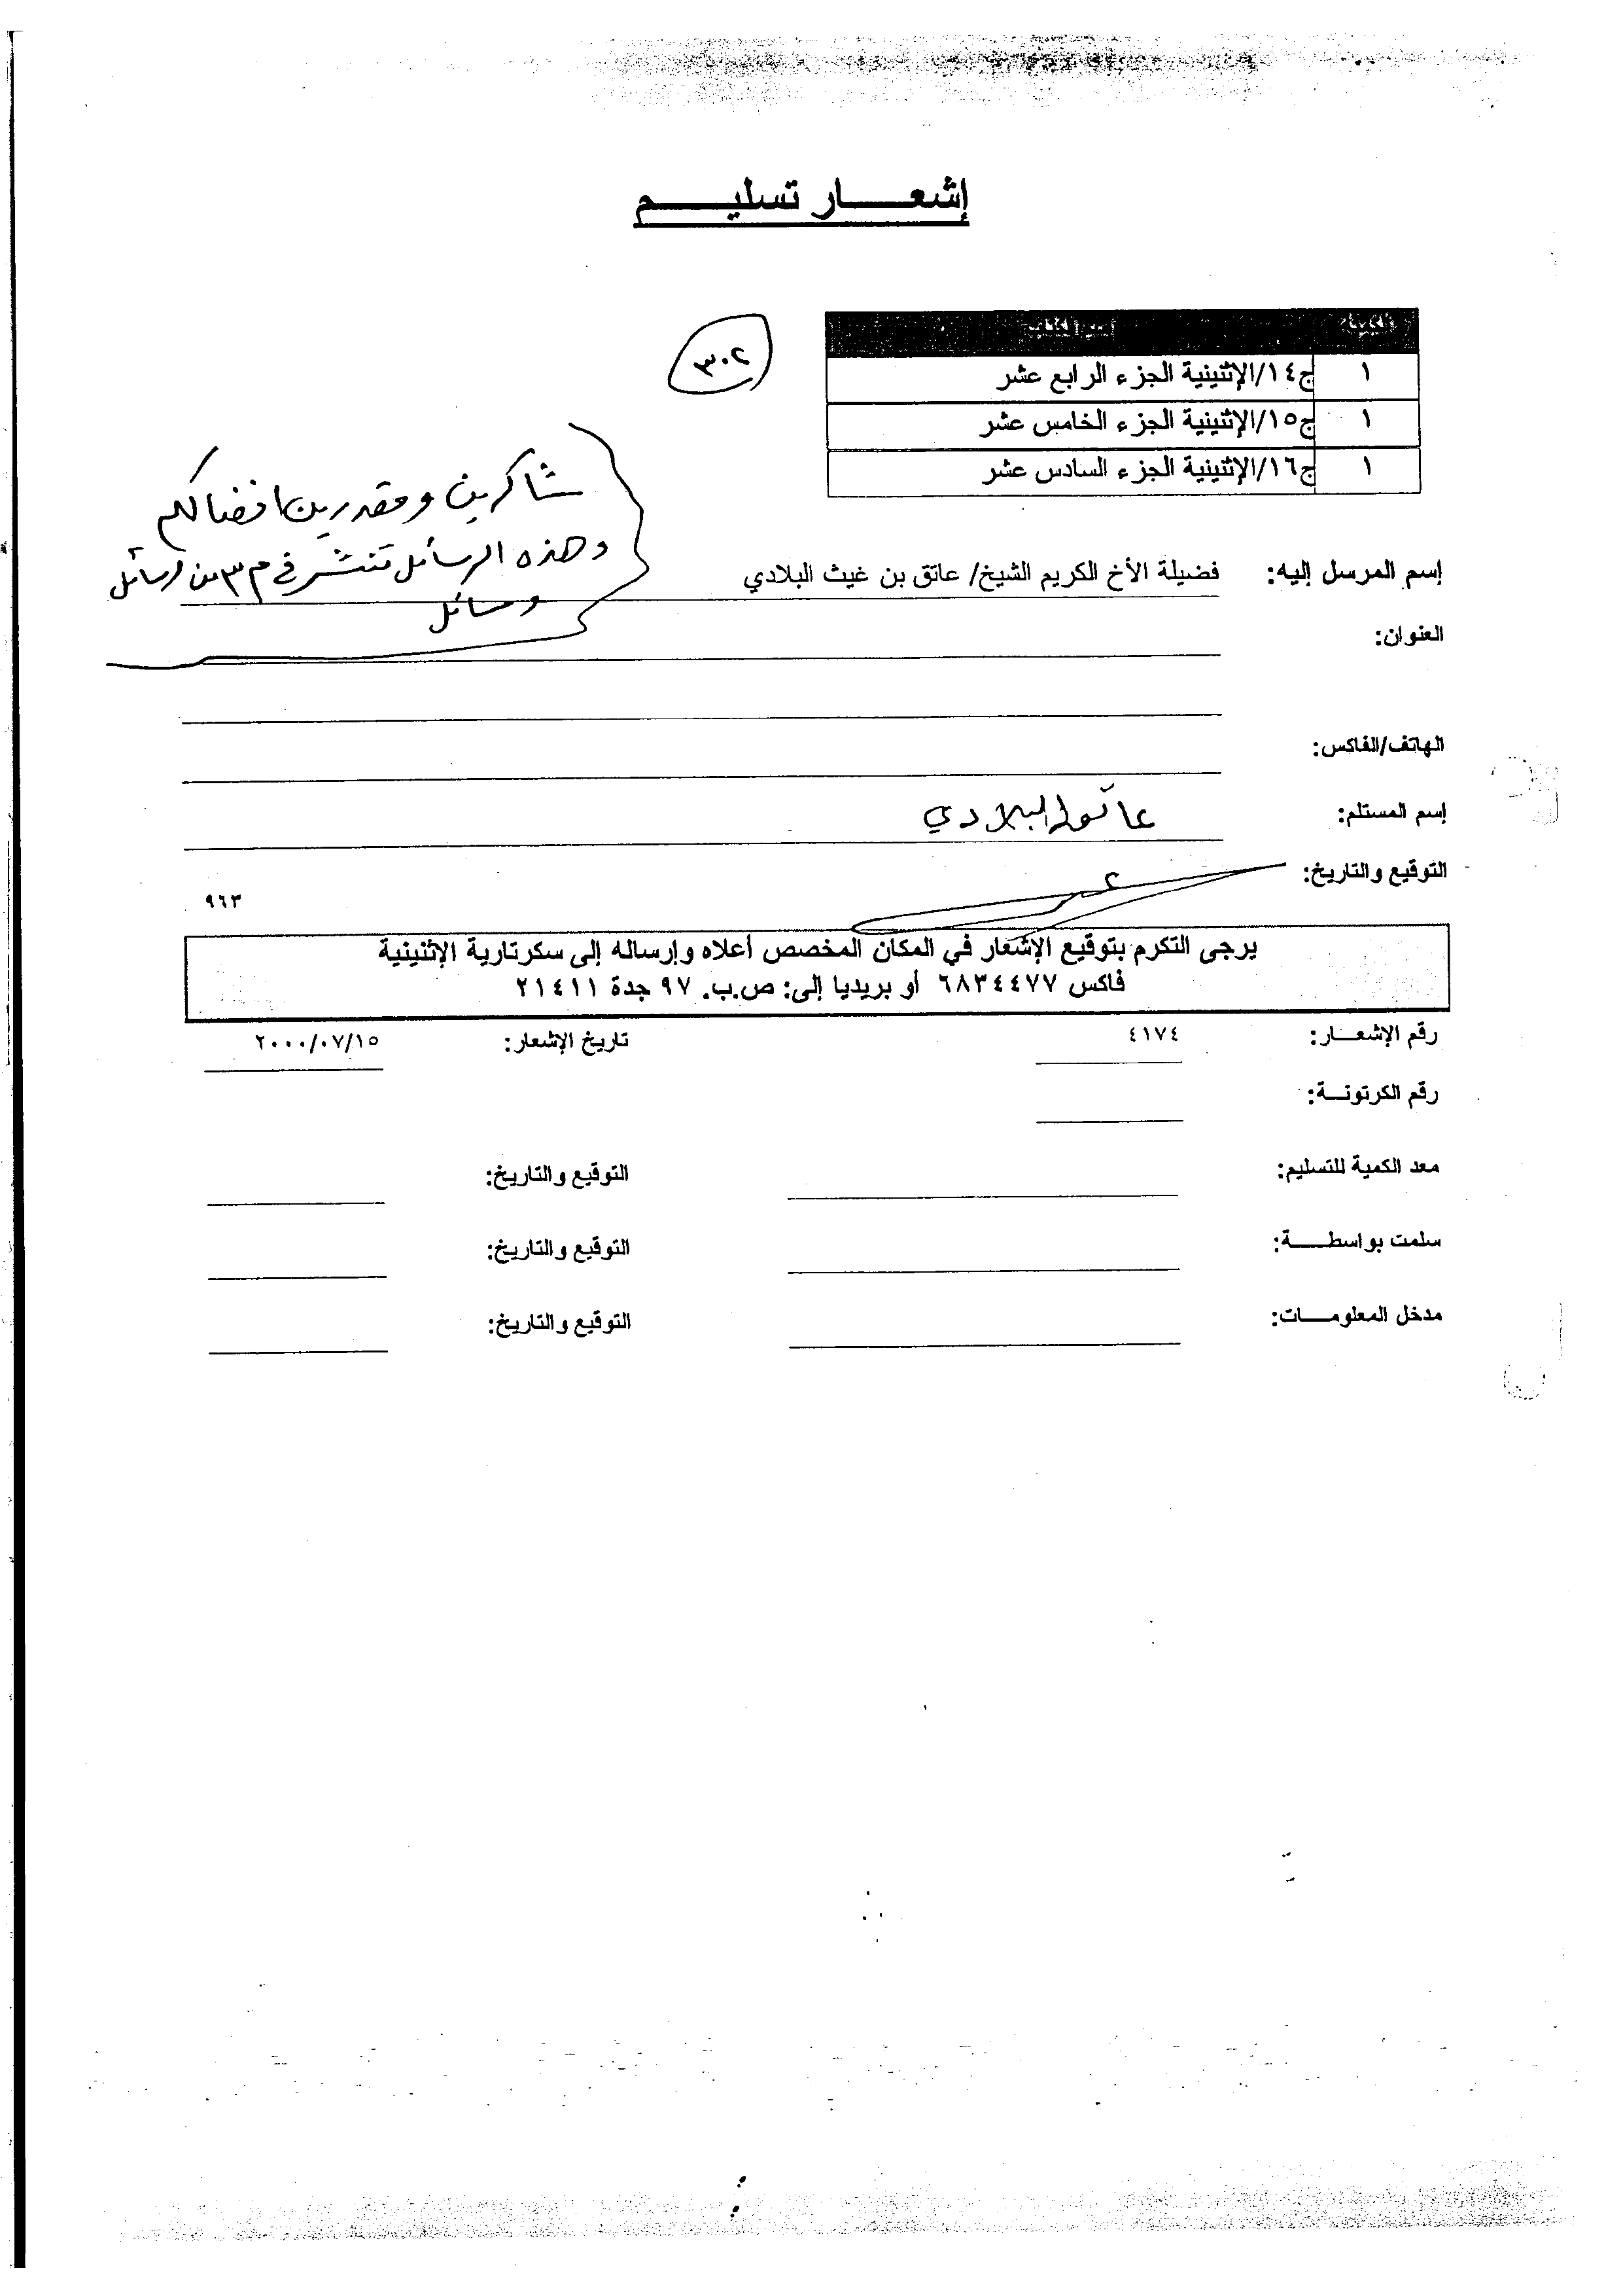 إشعــــار تسليــــــم
٣٠٢
الكمية اسم الكتاب
١ ج١٤/الإثنينية الجزء الرابع عشر
١ ج١٥/الإثنينية الجزء الخامس عشر
١ ج١٦/الإثنينية الجزء السادس عشر
شاكرين ومقدرين افضالكم
وهذه الرسائل تنشر في م ٣ من رسائل
ومسائل
إسم المرسل إليه: فضيلة الأخ الكريم الشيخ/ عاتق بن غيث البلادي
العنوان:
الهاتف/الفاكس:
إسم المستلم: عاتق البلادي
التوقيع والتاريخ:
٩٦٣
يرجى التكرم بتوقيع الإشعار في المكان المخصص أعلاه وإرساله إلى سكرتارية الإثنينية
فاكس ٦٨٣٤٤٧٧ أو بريديا إلى: ص.ب. ٩٧ جدة ٢١٤١١
رقم الإشعــار: ٤١٧٤ تاريخ الإشعار: ٢٠٠٠/٠٧/١٥
رقم الكرتونــة:
معد الكمية للتسليم: التوقيع والتاريخ:
سلمت بواسطــــة: التوقيع والتاريخ:
مدخل المعلومــات: التوقيع والتاريخ: